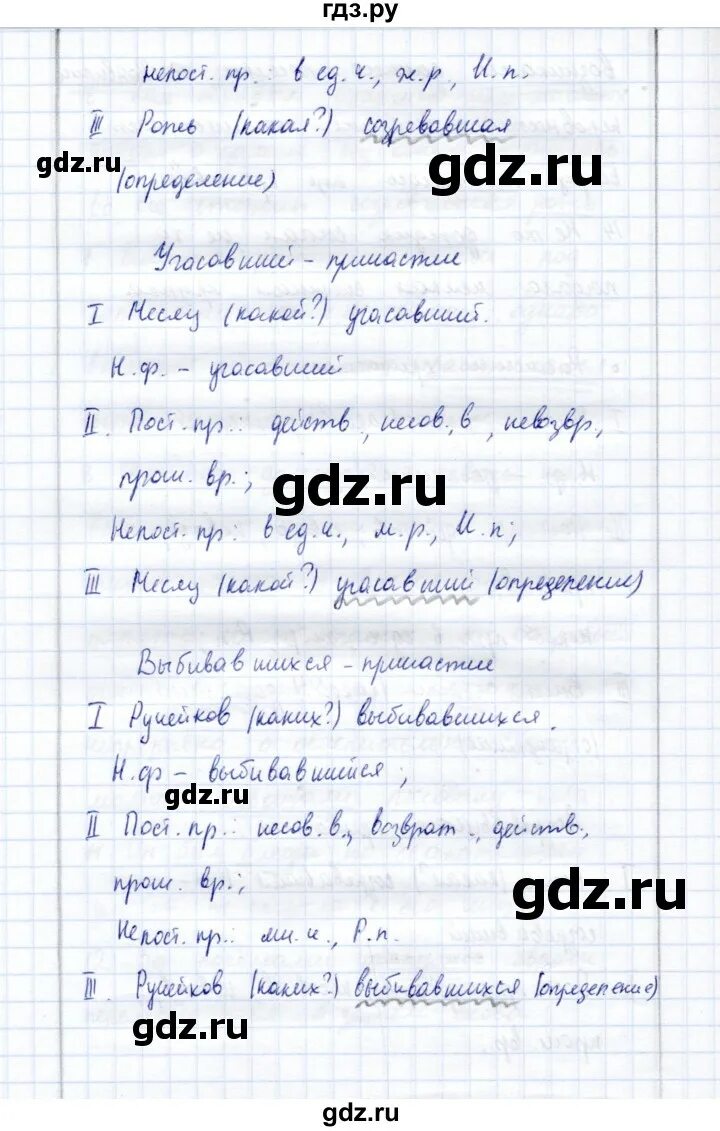 гдз.ру
непост. пр.: в ед.ч., ж.р., И.п.
III Рожь (какая?) созревавшая
gdz.ru
gdz.ru
(определение)
Угасавший – причастие
I Месяц (какой?) угасавший.
Н.ф. – угасавший
II. Пост. пр.: действ., несов. в., невозвр.,
прош. вр.;
gdz.ru
Непост. пр.: в ед.ч., м.р., И.п;
III Месяц (какой?) угасавший (определение)
Выбивавшихся – причастие
I Ручейков (каких?) выбивавшихся.
Н.ф – выбивавшийся;
gdz.ru
II Пост. пр.: несов. в., возврат., действ.,
прош. вр.;
gdz.ru
Непост. пр.: мн.ч., Р.п.
III. Ручейков (каких?) выбивавшихся (определение)
gdz.ru
прош. вр.
gdz.ru